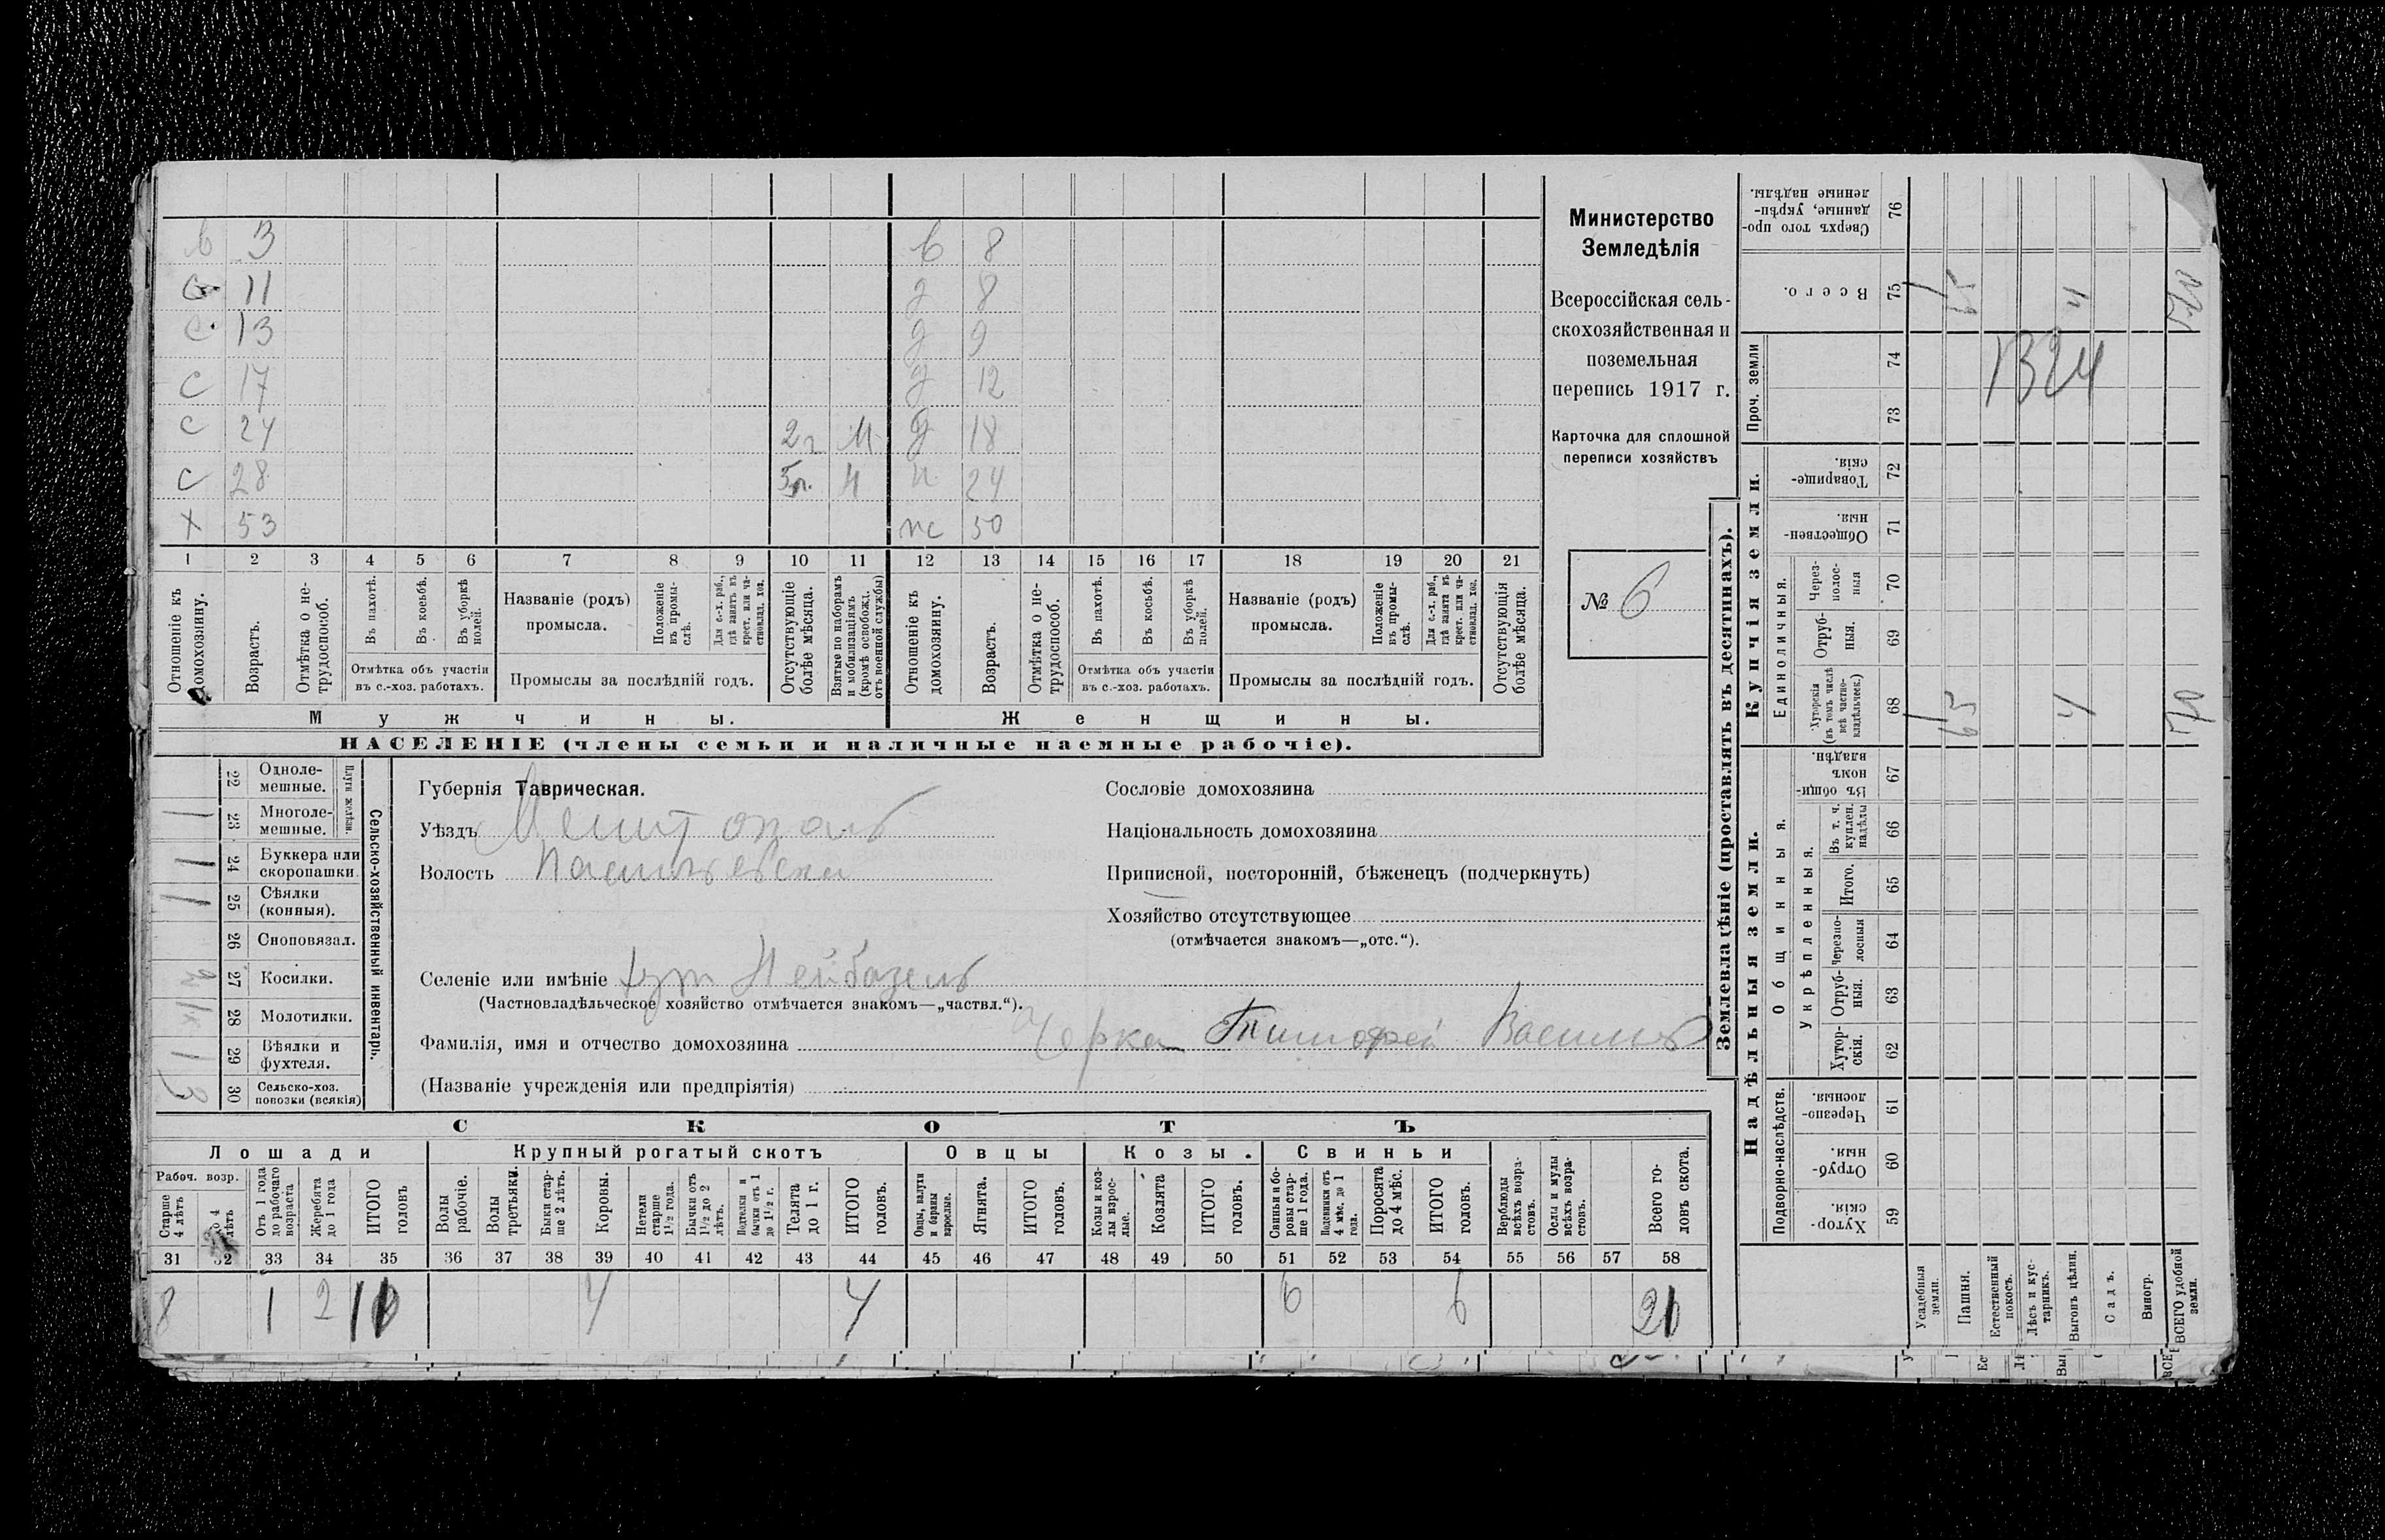 в 3 в 8
с 11 д 8
с 13 д 9
с 17 д 12
с 24 2 г М д 18
с 28 н 24
х 53 жс 50
1 2 3 4 5 6 7 8 9 10 11 12 13 14 15 16 17 18 19 20 21
Отношеніе къ домохозяину.
Возрастъ.
Отмѣтка о не-
трудоспособ.
Въ пахотѣ.
Въ косьбѣ.
Въ уборкѣ
полей.
Отмѣтка объ участіи
въ с.-хоз. работахъ.
Названіе (родъ)
промысла.
Положеніе
въ промы-
слѣ.
Для с.-х. раб.,
гдѣ занятъ въ
крест. или ча-
стновлад. хоз.
Промыслы за послѣдній годъ.
Отсутствующіе
болѣе мѣсяца.
Взятые по наборамъ
и мобилизаціямъ
(кромѣ освобожд.
отъ военной службы)
Отношеніе къ
домохозяину.
Возрастъ.
Отмѣтка о не-
трудоспособ.
Въ пахотѣ.
Въ косьбѣ.
Въ уборкѣ
полей.
Отмѣтка объ участіи
въ с.-хоз. работахъ.
Названіе (родъ)
промысла.
Положеніе
въ промы-
слѣ.
Для с.-х. раб.,
гдѣ занята въ
крест. или ча-
стновлад. хоз.
Промыслы за послѣдній годъ.
Отсутствующія
болѣе мѣсяца.
Мужчины.
Женщины.
НАСЕЛЕНІЕ (члены семьи и наличные наемные рабочіе).
Министерство
Земледѣлія
Всероссійская сель-
скохозяйственная и
поземельная
перепись 1917 г.
Карточка для сплошной
переписи хозяйствъ
№ 6
22 Одноле-
мешные.
23 Многоле-
мешные.
Плуги желѣзн.
24 Буккера или
скоропашки.
25 Сѣялки
(конныя).
26 Сноповязал.
27 Косилки.
28 Молотилки.
29 Вѣялки и
фухтеля.
30 Сельско-хоз.
повозки (всякія)
Сельско-хозяйственный инвентарь.
Губернія Таврическая.
Уѣздъ Мелитополь
Волость Васильевска
Селеніе или имѣніе хут Нейбазель
(Частновладѣльческое хозяйство отмѣчается знакомъ—„частвл.“).
Фамилія, имя и отчество домохозяина Черка Тимофей Василь
(Названіе учрежденія или предпріятія)
Сословіе домохозяина
Національность домохозяина
Приписной, посторонній, бѣженецъ (подчеркнуть)
Хозяйство отсутствующее
(отмѣчается знакомъ—„отс.“).
СКОТЪ
Лошади
Крупный рогатый скотъ
Овцы
Козы.
Свиньи
Рабоч. возр.
Старше
4 лѣтъ
До 4
лѣтъ
Отъ 1 года
до рабочаго
возраста
Жеребята
до 1 года
ИТОГО
головъ
Волы
рабочіе.
Волы
третьяки.
Быки стар-
ше 2 лѣтъ.
Коровы.
Нетели
старше
1½ года.
Бычки отъ
1½ до 2
лѣтъ.
Подтелки и
бычки отъ 1
до 1½ г.
Телята
до 1 г.
ИТОГО
головъ.
Овцы, валухи
и бараны
взрослые.
Ягнята.
ИТОГО
головъ.
Козы и коз-
лы взрос-
лые.
Козлята
ИТОГО
головъ.
Свиньи и бо-
ровы стар-
ше 1 года.
Подсвинки отъ
4 мѣс. до 1
года.
Поросята
до 4 мѣс.
ИТОГО
головъ.
Верблюды
всѣхъ возра-
стовъ.
Ослы и мулы
всѣхъ возра-
стовъ.
Всего го-
ловъ скота.
31 32 33 34 35 36 37 38 39 40 41 42 43 44 45 46 47 48 49 50 51 52 53 54 55 56 57 58
8 1 2 4 4 6 6
Землевладѣніе (проставлять въ десятинахъ).
Надѣльныя земли.
Купчія земли.
Проч. земли
Подворно-наслѣдств.
Общинныя.
Укрѣпленныя.
Единоличныя.
Сверхъ того про-
данные, укрѣп-
ленные надѣлы.
76
Всего.
75
74
73
Товарище-
скія.
72
Обществен-
ныя.
71
Через-
полос-
ныя
70
Отруб-
ныя.
69
Хуторскія
(въ томъ числѣ
всѣ частно-
владѣльческ.)
68
Въ общин-
номъ
владѣн.
67
Въ т. ч.
куплен.
надѣлы
66
Итого.
65
Черезпо-
лосныя
64
Отруб-
ныя.
63
Хутор-
скія.
62
Черезпо-
лосныя.
61
Отруб-
ныя.
60
Хутор-
скія.
59
Усадебныя
земли.
Пашня.
Естественный
покосъ.
Лѣсъ и кус-
тарникъ.
Выгонъ цѣлин.
Садъ.
Виногр.
ВСЕГО удобной
земли.
1 65 4 70
1 65 4
1324